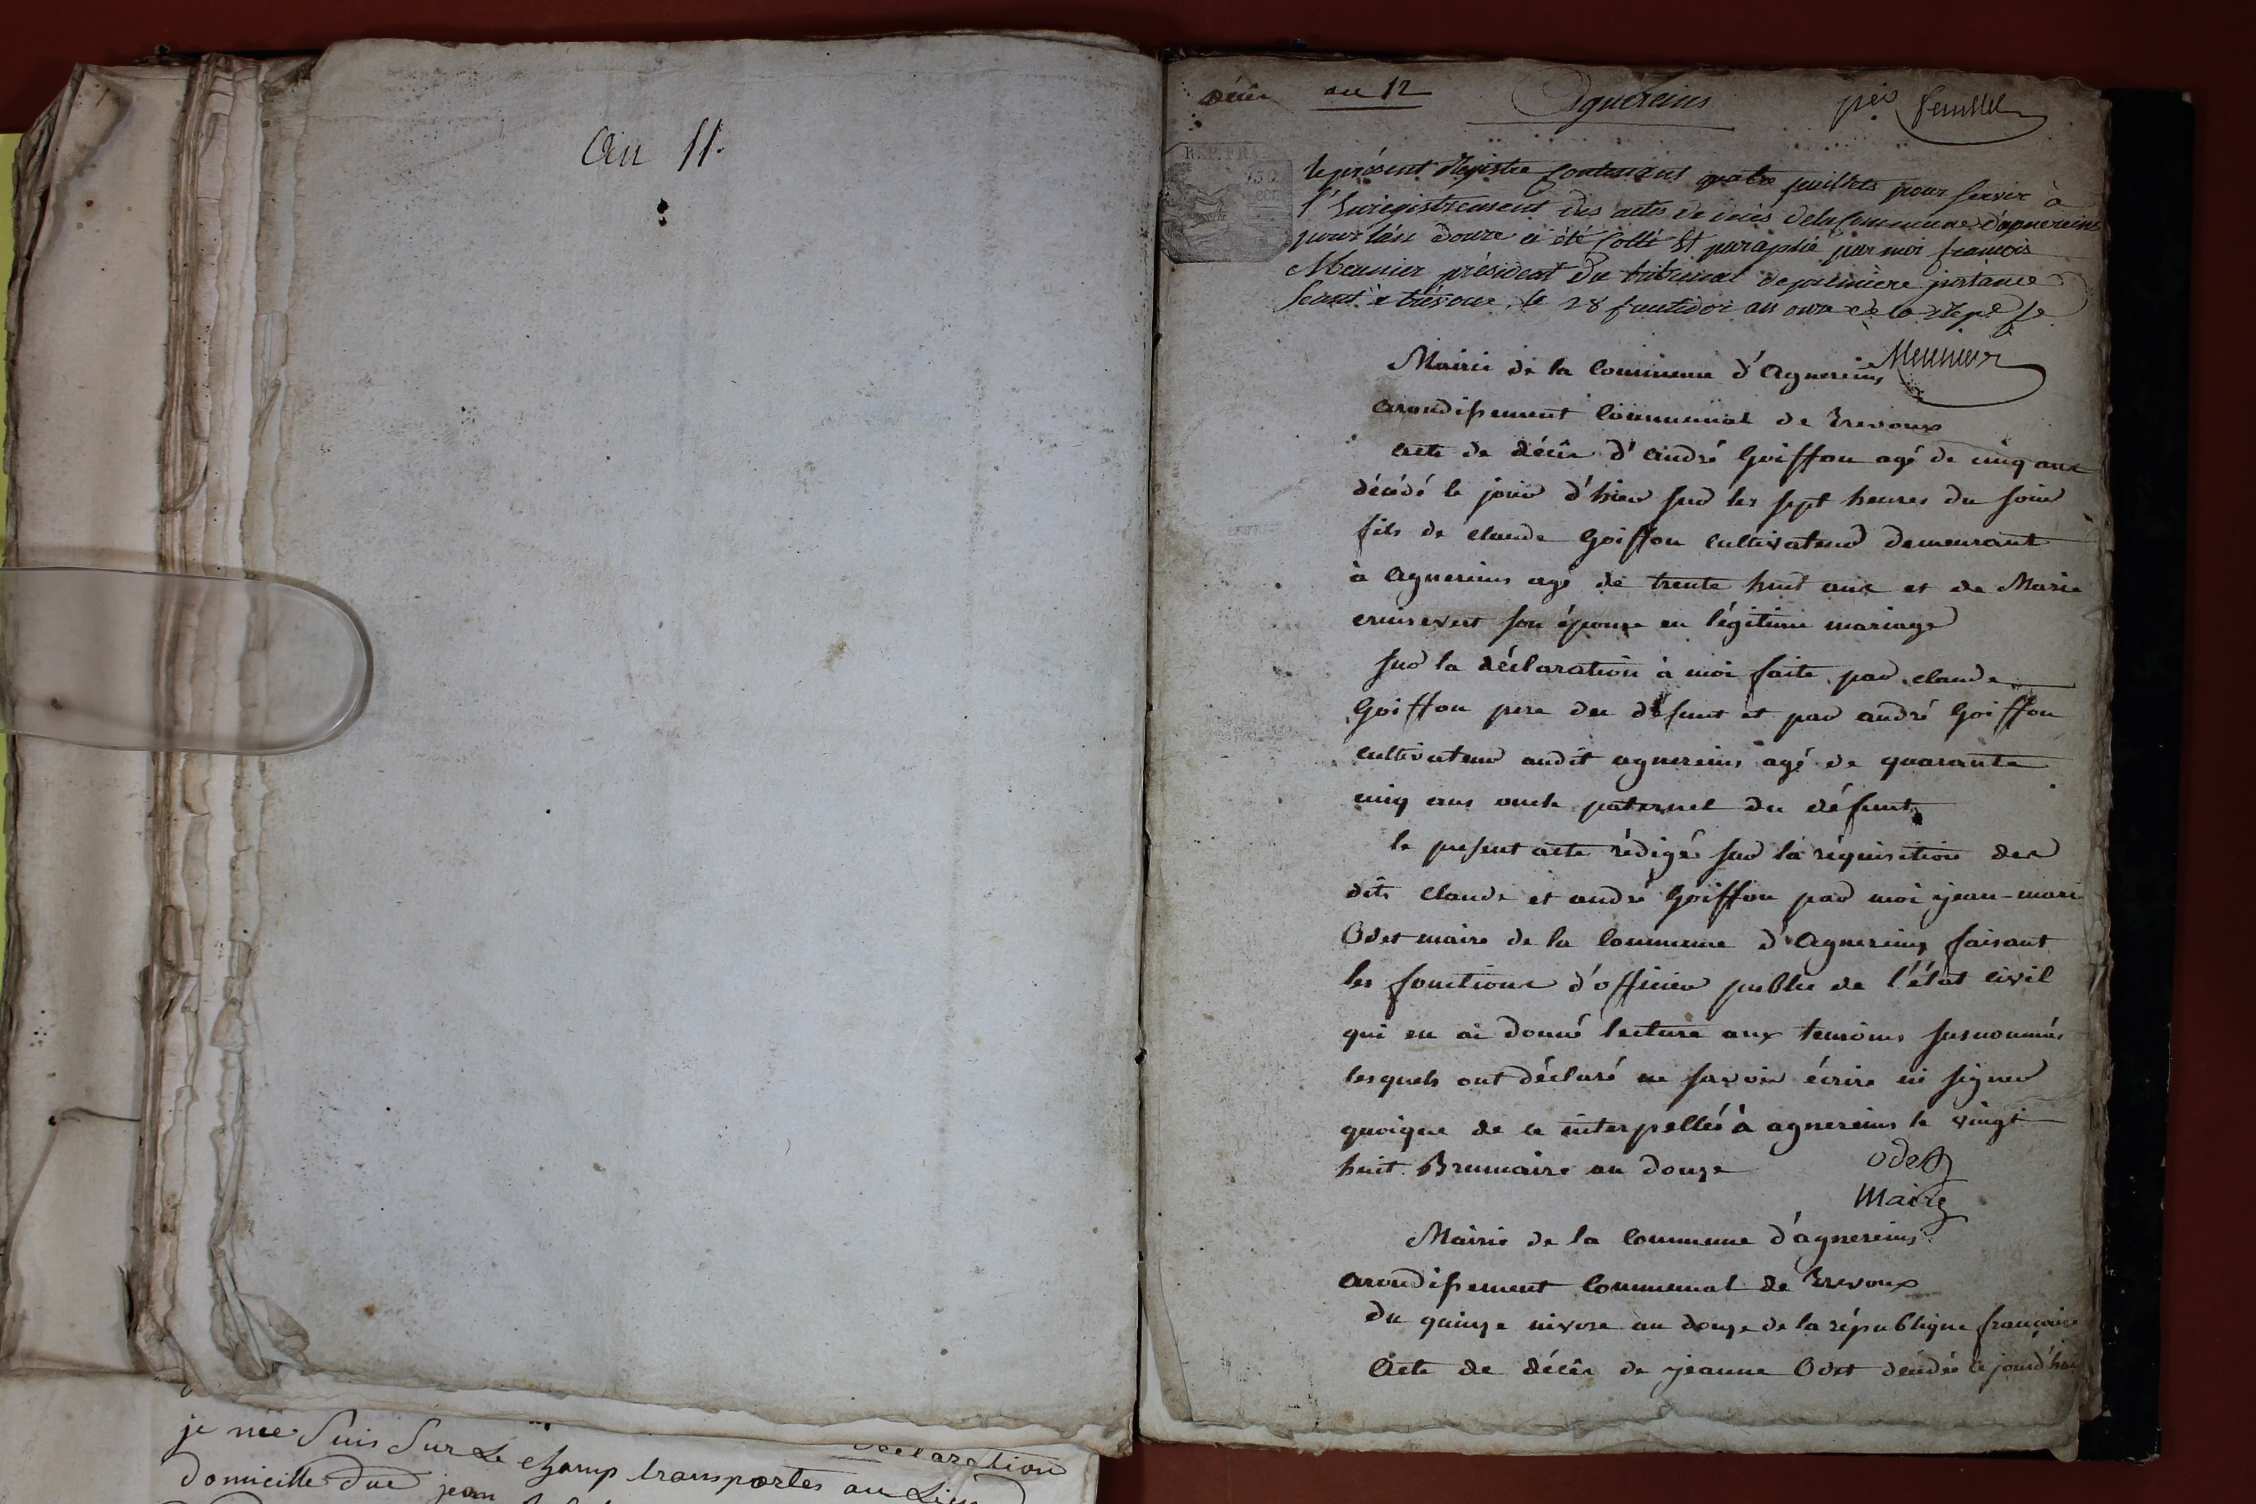 an 11.
décès an 12 Agnereins per feuillet
REP. FRA
le présent Registre Contenant quatre feuillets pour servir à
l'Enregistrement des actes de décès de la Commune d'agnereins
pour l'an douze a été Collé Et paraphé par moi françois
Meunier président du tribunal de première instance
séant à trévoux, le 28 fructidor an onze de la Repe fe
Meunier
Mairie de la Commune d'Agnereins
arondissement Communal de Trevoux
acte de décès d'andré Goiffon agé de cinq ans
décédé le jour d'hier sur les sept heures du soir
fils de claude Goiffon cultivateur demeurant
à agnereins agé de trente huit ans et de Marie
son épouse en légitime mariage
sur la déclaration à moi faite par claude
Goiffon pere du défunt et par andré Goiffon
cultivateur audit agnereins agé de quarante
cinq ans oncle paternel du défunt
le present acte rédigé sur la réquisition des
dits claude et andré Goiffon par moi jean-marie
Odet maire de la Commune d'Agnereins faisant
les fonctions d'officier public de l'état civil
qui en ai donné lecture aux temoins susnommés
lesquels ont déclaré ne savoir écrire ni signer
quoique de ce interpellés à agnereins le vingt
huit Brumaire an douze
odet
Maire
Mairie de la Commune d'agnereins
arondissement Communal de Trevoux
du quinze nivose an douze de la république française
Acte de décès de jeanne Odet décédée ce jourd'hui
je me suis sur Le champ transportés au Lieu
declaration
domicille du jean